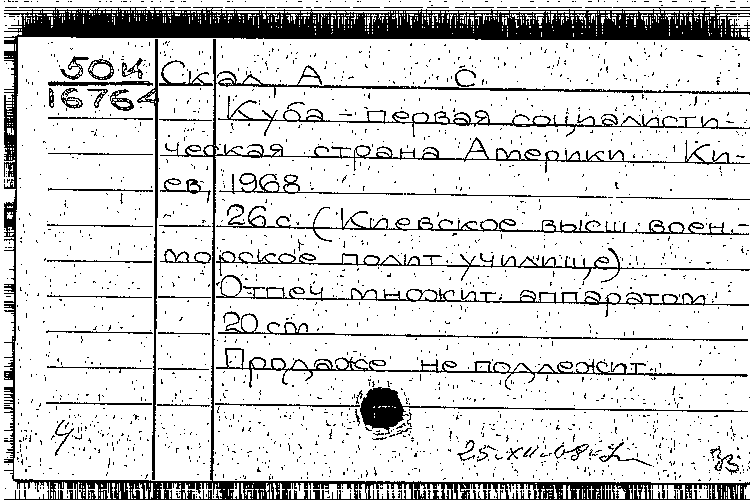 50к Скал, А С.
16764
Куба – первая социалисти-
ческая страна Америки. Ки-
ев, 1968.
26 с. (Киевское высш. воен.-
морское полит. училище)
Отпеч. множит. аппаратом
20 см.
Продаже не подлежит.